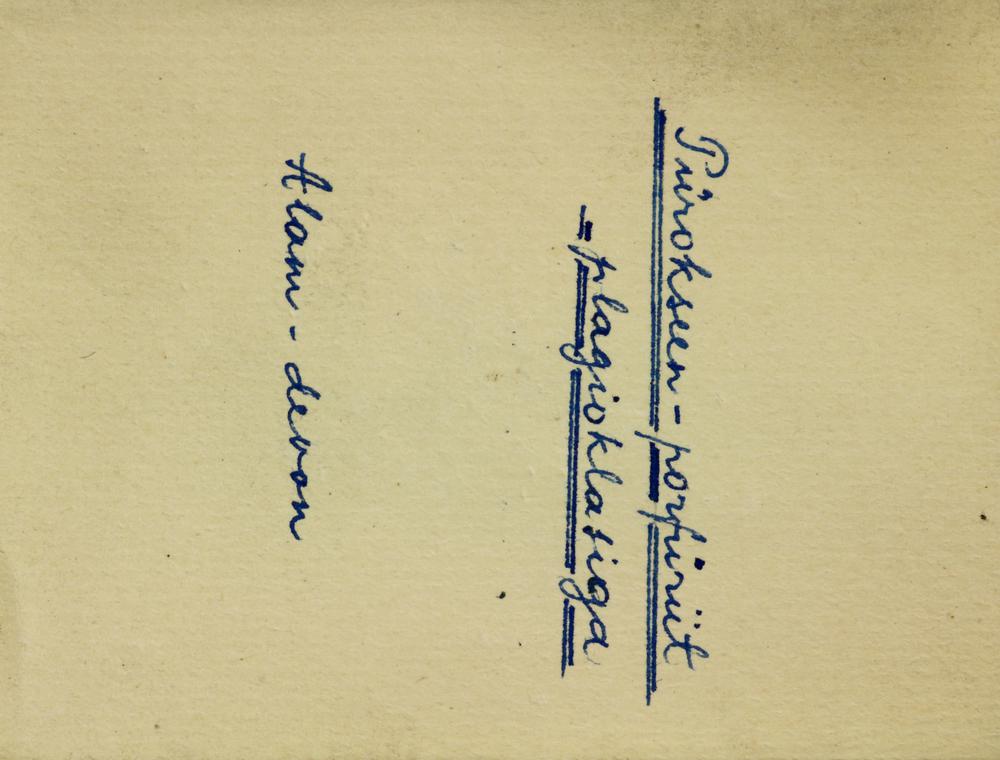 Pürokseen-porfürüt
- plagioklasiga
Alam-devon